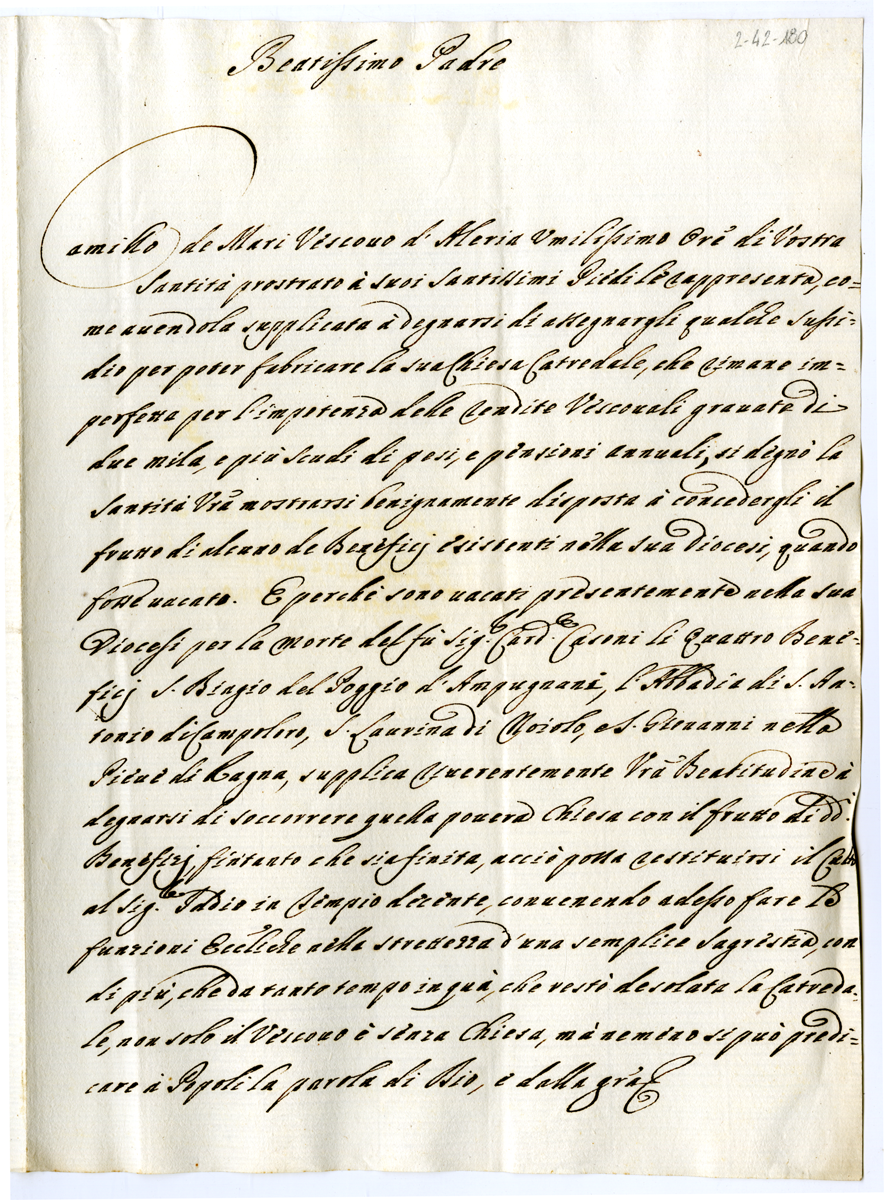 2-42-180
Beatissimo Padre
Camillo de Mari Vescouo d'Aleria Vmilissimo Orẽ di Vostra
Santità prostrato à suoi Santissimi Piedi le rappresenta, co=
me auendola supplicata à degnarsi di assegnargli qualche sussi=
dio per poter fabricare la sua Chiesa Catredale, che rimane im=
perfetta per l'impotenza delle rendite Vescouali grauate di
due mila, e più scudi di pesi, e pensioni annuali, si degnò la
Santità Vrã mostrarsi benignamente disposta à concedergli il
frutto di alcuno de Beneficij esistenti nella sua Diocesi, quando
fosse uacato. E perche sono uacati presentemente nella sua
Diocesi per la morte del fù Sig.r Card.le Casoni li quattro Bene=
ficij S. Biagio del Poggio d'Ampugnani, l'Abbadia di S. An=
tonio di Campoloro, S. Laurina di Noiolo, e S. Giouanni nella
Pieue di Rogna, supplica riuerentemente Vrã Beatitudine à
degnarsi di soccorrere quella pouera Chiesa con il frutto di dd.i
Beneficij, fintanto che sia finita, acciò possa restituirsi il Culto
al Sig.re Iddio in Tempio decente, conuenendo adesso fare le
funzioni Eccl̃iche nella strettezza d'una semplice Sagrestia, con
di più, che da tanto tempo in quà, che restò desolata la Catreda=
le, non solo il Vescouo è senza Chiesa, mà nemeno si può predi=
care à Popoli la parola di Dio, e dalla grã